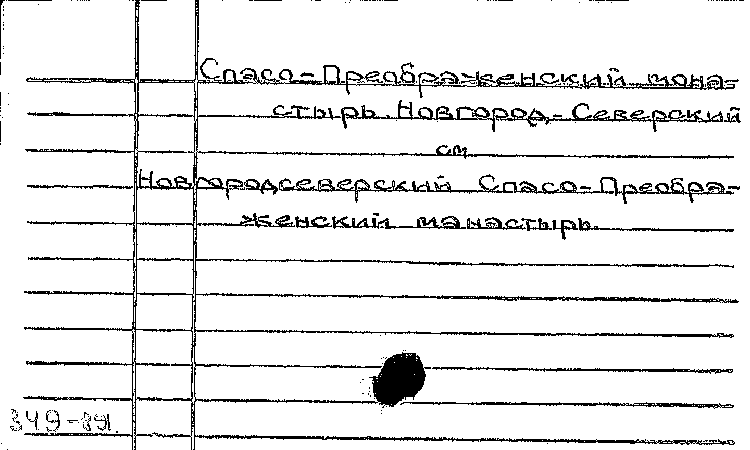 Спасо-Преображенский мона-
стырь. Новгород-Северский
см.
Новгородсеверский Спасо-Преобра-
женский манастырь.
349-891.